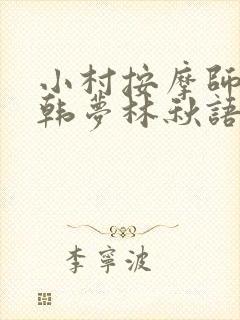 小村按摩師
韩夢林秋語
李寧波